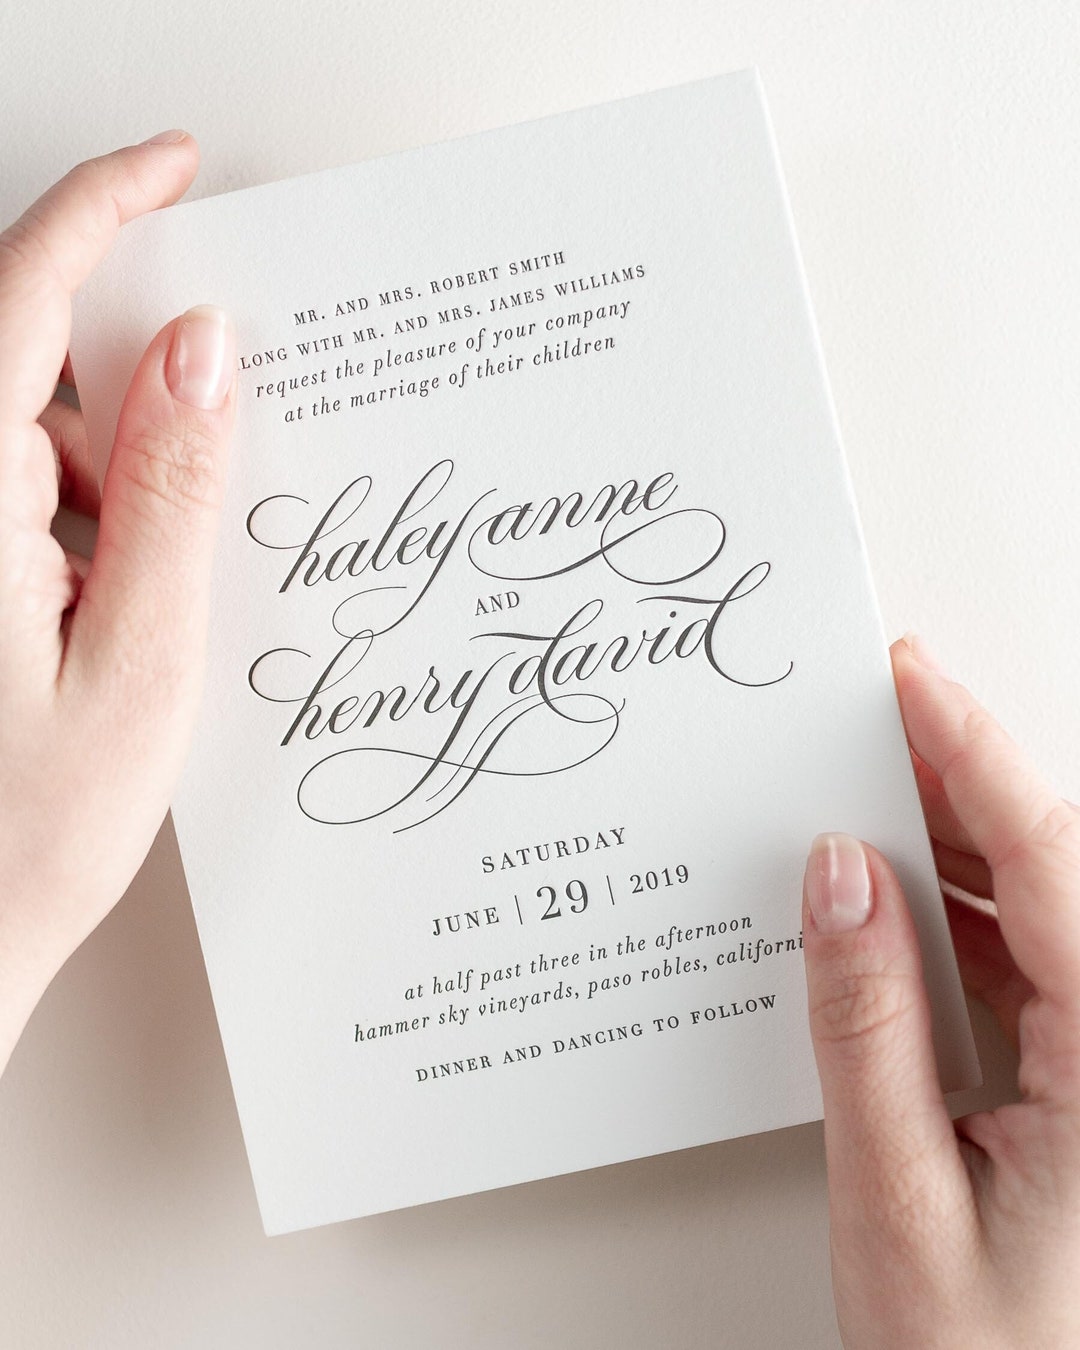 MR. AND MRS. ROBERT SMITH
LONG WITH MR. AND MRS. JAMES WILLIAMS
request the pleasure of your company
at the marriage of their children
haley anne
AND
henry david
SATURDAY
JUNE | 29 | 2019
at half past three in the afternoon
hammer sky vineyards, paso robles, californi
DINNER AND DANCING TO FOLLOW